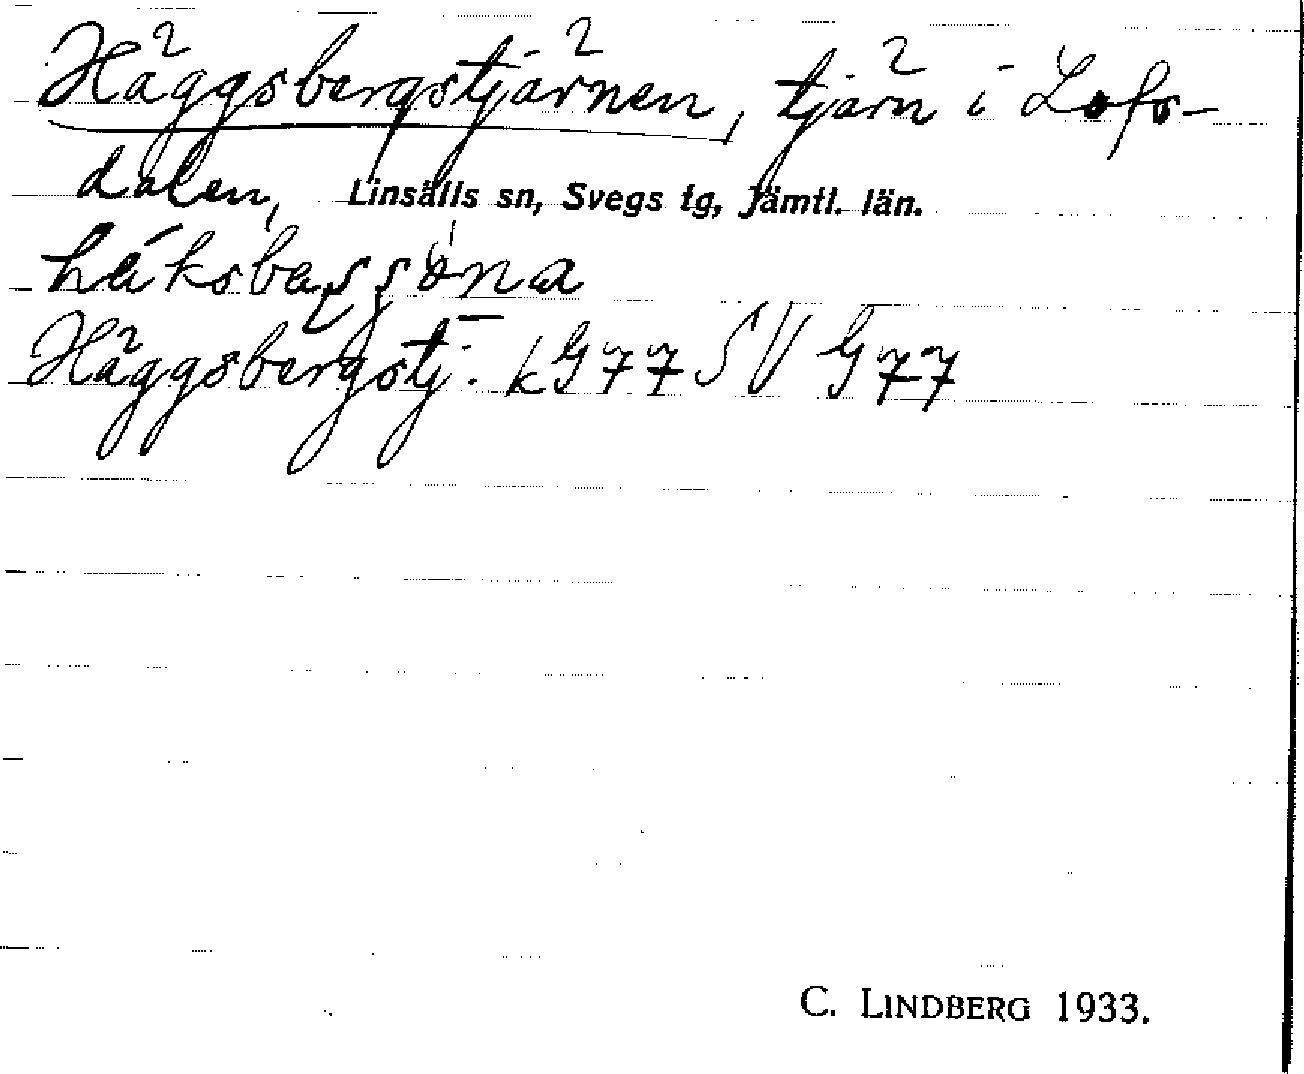 Häggsbergstjärnen, tjärn i Lofs-
dalen, Linsälls sn, Svegs tg, Jämtl. län.
Häggsbergstj. k G77 SV G77
C. LINDBERG 1933.